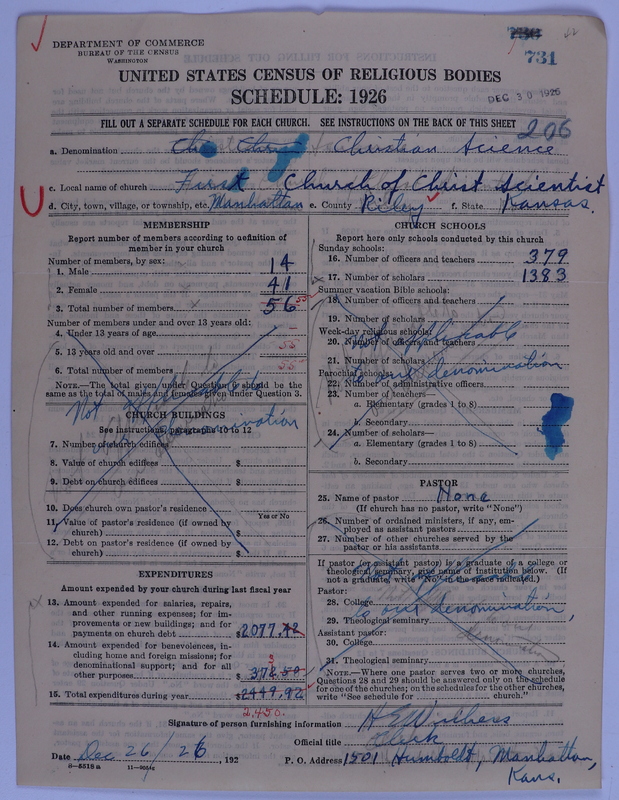 DEPARTMENT OF COMMERCE
BUREAU OF THE CENSUS
WASHINGTON
731
UNITED STATES CENSUS OF RELIGIOUS BODIES
SCHEDULE: 1926
DEC 30 1926
FILL OUT A SEPARATE SCHEDULE FOR EACH CHURCH. SEE INSTRUCTIONS ON THE BACK OF THIS SHEET
206
a. Denomination Christian Science
c. Local name of church First Church of Christ Scientist
d. City, town, village, or township, etc. Manhattan e. County Riley f. State Kansas.
MEMBERSHIP
Report number of members according to definition of
member in your church
Number of members, by sex:
1. Male 14
2. Female 41
3. Total number of members 56 55
Number of members under and over 13 years old:
4. Under 13 years of age
5. 13 years old and over 55
6. Total number of members 55
NOTE.—The total given under Question 6 should be the
same as the total of males and females given under Question 3.
Not
our denomination
CHURCH BUILDINGS
See instructions, paragraphs 10 to 12
7. Number of church edifices
8. Value of church edifices $
9. Debt on church edifices $
10. Does church own pastor's residence
Yes or No
11. Value of pastor's residence (if owned by
church) $
12. Debt on pastor's residence (if owned by
church) $
EXPENDITURES
Amount expended by your church during last fiscal year
13. Amount expended for salaries, repairs,
and other running expenses; for im-
provements or new buildings; and for
payments on church debt $2077.42
14. Amount expended for benevolences, in-
cluding home and foreign missions; for
denominational support; and for all
other purposes $372.50
3
15. Total expenditures during year $2449.92
2,450.
CHURCH SCHOOLS
Report here only schools conducted by this church
Sunday schools:
16. Number of officers and teachers 379
17. Number of scholars 1383
Summer vacation Bible schools:
18. Number of officers and teachers
19. Number of scholars
Week-day religious schools:
20. Number of officers and teachers
21. Number of scholars
Parochial schools:
22. Number of administrative officers
23. Number of teachers—
a. Elementary (grades 1 to 8)
b. Secondary
24. Number of scholars—
a. Elementary (grades 1 to 8)
b. Secondary
Not applicable
to our denomination
PASTOR
25. Name of pastor None
(If church has no pastor, write "None")
26. Number of ordained ministers, if any, em-
ployed as assistant pastors
27. Number of other churches served by the
pastor or his assistants
If pastor (or assistant pastor) is a graduate of a college or
theological seminary, give name of institution below. (If
not a graduate, write "No" in the space indicated.)
Pastor:
28. College
to our denomination
29. Theological seminary
Assistant pastor:
30. College
31. Theological seminary
NOTE.—Where one pastor serves two or more churches,
Questions 28 and 29 should be answered only on the schedule
for one of the churches; on the schedules for the other churches,
write "See schedule for church."
Signature of person furnishing information
Official title Clerk
Date Dec 26/26, 192 P. O. Address 1501 Humboldt, Manhattan,
Kans.
8—5518 a